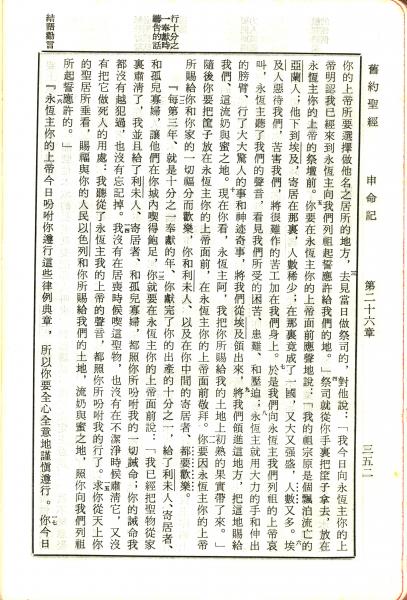 舊約聖經　申命記　第二十六章　三五二
你的上帝所要選擇做他名之居所的地方，去見當日做祭司的，對他說：『我今日向永恆主你的上
帝明認我已經來到永恆主向我們列祖起誓應許給我們的地。』祭司就從你手裏把筐子拿去，放在
永恆主你的上帝的祭壇前。你要在永恆主你的上帝面前應聲地說：『我的祖宗原是個飄泊流亡的
亞蘭人；他下到埃及，寄居在那裏，人數稀少；在那裏竟成了一國，又大又强盛，人數又多。埃
及人惡待我們，苦害我們，將很難作的苦工加在我們身上。於是我們向永恆主我們列祖的上帝哀
叫，永恆主聽了我們的聲音，看見我們所受的困苦、患難、和壓迫；永恆主就用大力的手和伸出
的膀臂、行了大大驚人的事和神迹奇事，將我們從埃及領出來，將我們領進這地方，把這地賜給
我們、這流奶與蜜之地。現在你看，永恆主阿，我把你所賜給我的土地上初熟的果實帶了來。』
隨後你要把筐子放在永恆主你的上帝面前，在永恆主你的上帝面前敬拜。你要因永恆主你的上帝
所賜給你和你家的一切福分而歡樂，你和利未人、以及在你中間的寄居者、都要歡樂。
行十分之
一奉獻時
禱告的話
『每第三年、就是十分之一奉獻的年、你獻完了你的出產的十分之一，給了利未人、寄居者、
和孤兒寡婦，讓他們在你城內喫得飽足，你就要在永恆主你的上帝面前說：『我已經把聖物從家
裏肅清了，我並且給了利未人、寄居者、和孤兒寡婦，都照你所吩咐我的一切誡命；你的誡命我
都沒有越犯過，也沒有忘記掉。我沒有在居喪時候喫這聖物，也沒有在不潔淨時候肅清它，又沒
有把它做死人的用處：我聽從了永恆主我的上帝的聲音，都照你所吩咐我的行了。求你從天上你
的聖居所垂看，賜福與你的人民以色列和你所賜給我們的土地、流奶與蜜之地、照你向我們列祖
所起誓應許的。』
結語勸言
『永恆主你的上帝今日吩咐你遵行這些律例典章，所以你要全心全意地謹愼遵行。你今日